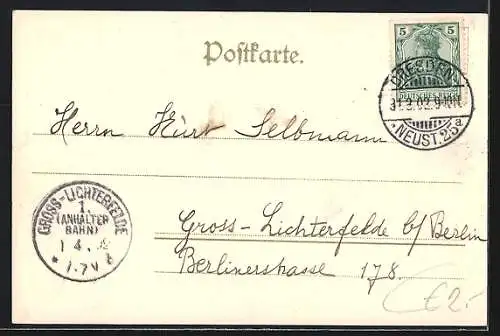 Postkarte.
5 5
DEUTSCHES REICH
DRESDEN-
31.3.02.9-10N
* NEUST.25 a
Herrn Kurt Selbmann
GROSS-LICHTERFELDE
1.
(ANHALTER
BAHN)
1 4. 2
* 7-7V
Gross-Lichterfelde b/Berlin
Berlinerstrasse 178.
€2.-